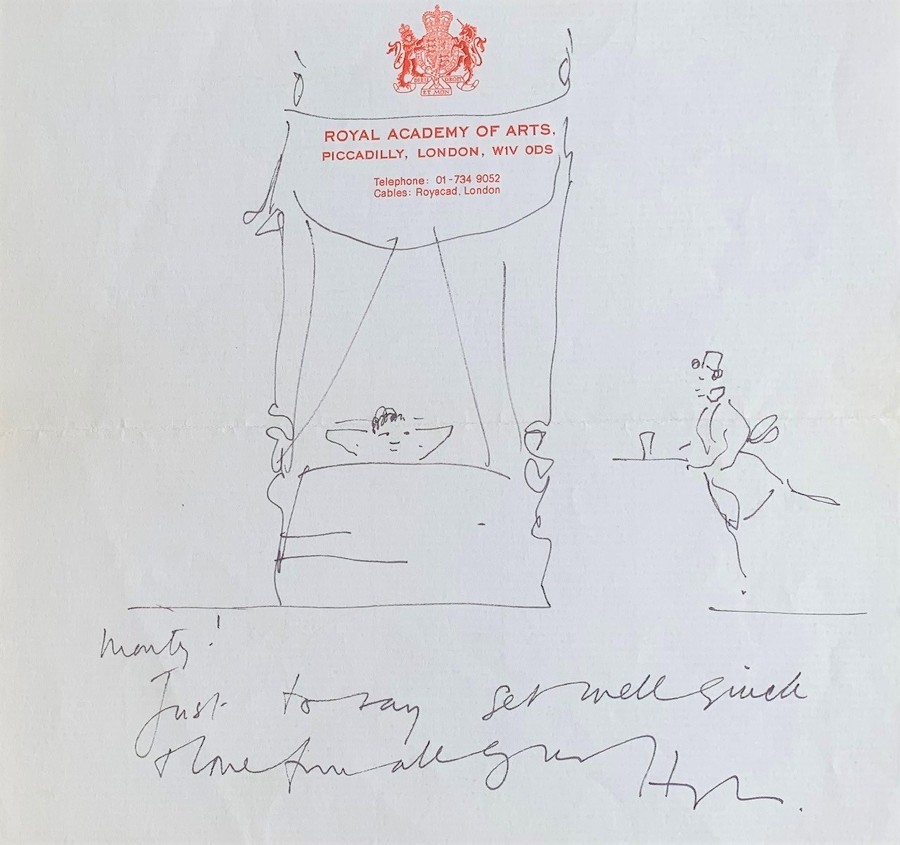 ET MON
ROYAL ACADEMY OF ARTS,
PICCADILLY, LONDON, W1V 0DS
Telephone: 01-734 9052
Cables: Royacad, London
Monty!
Just to say get well quick
& love from all